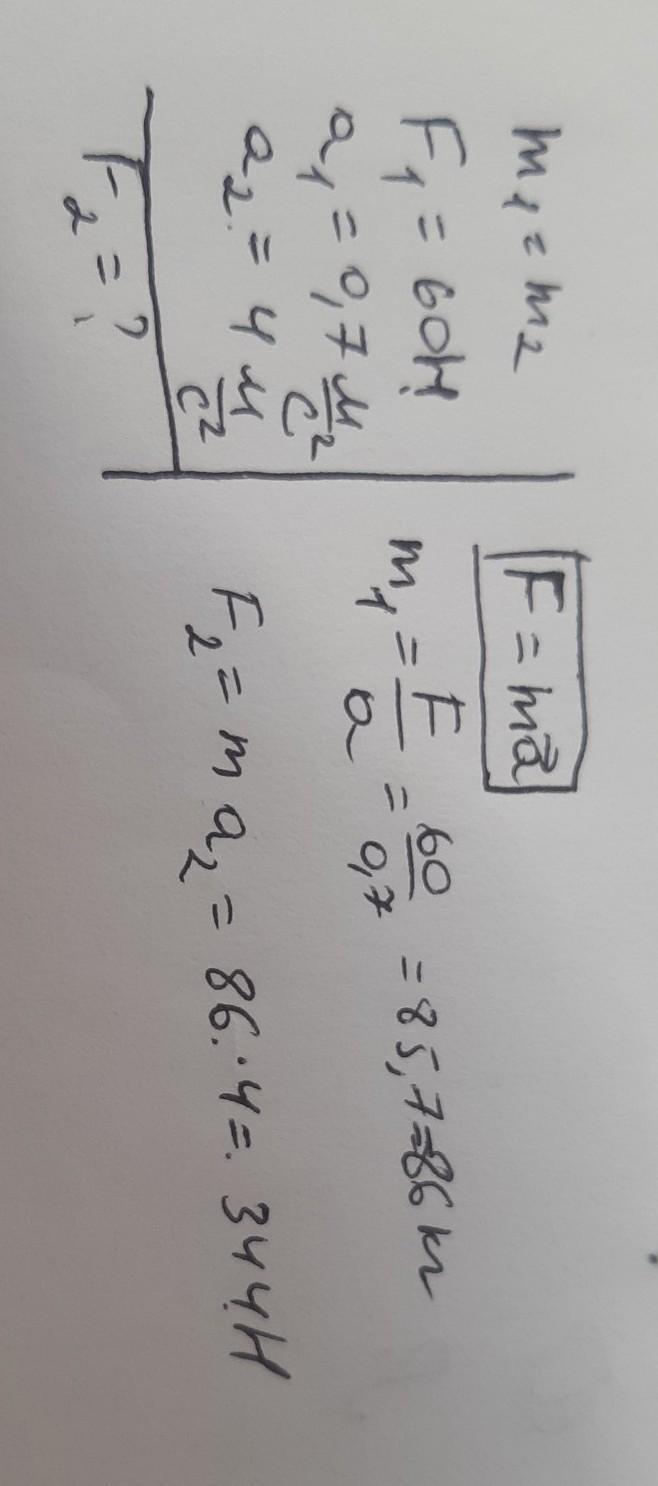 m₁ = m₂
F₁ = 60Н
a₁ = 0,7 м/с²
a₂ = 4 м/с²
F₂ = ?
F = ma⃗
m₁ = F/a = 60/0,7 = 85,7 = 86 кг
F₂ = m a₂ = 86 · 4 = 344Н